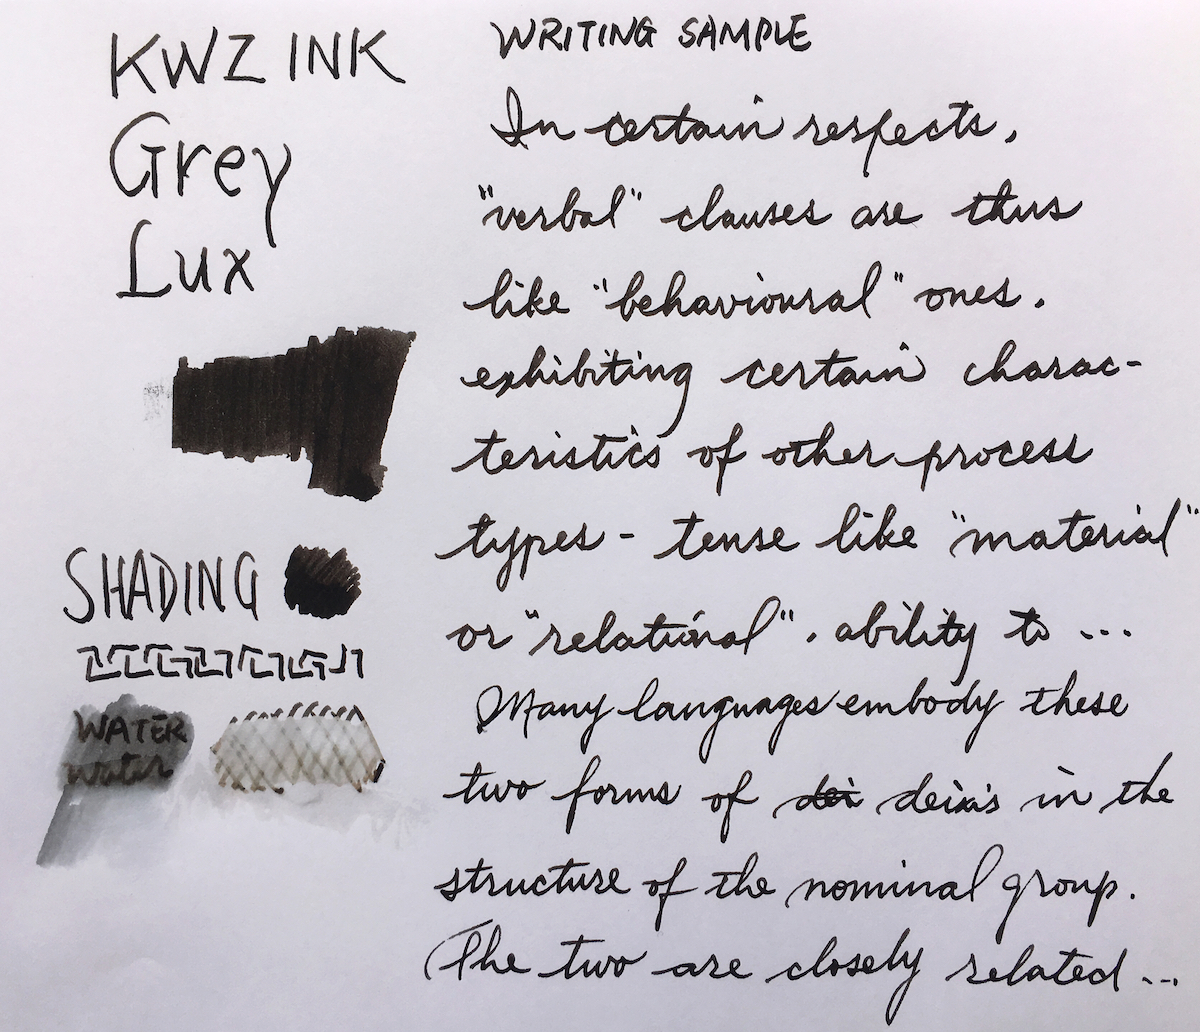 KWZ INK
Grey
Lux
SHADING
WATER
water
WRITING SAMPLE
In certain respects,
"verbal" clauses are thus
like "behavioural" ones.
exhibiting certain charac-
teristics of other process
types - tense like "material"
or "relational". ability to ...
Many languages embody these
two forms of dei deixis in the
structure of the nominal group.
The two are closely related ...